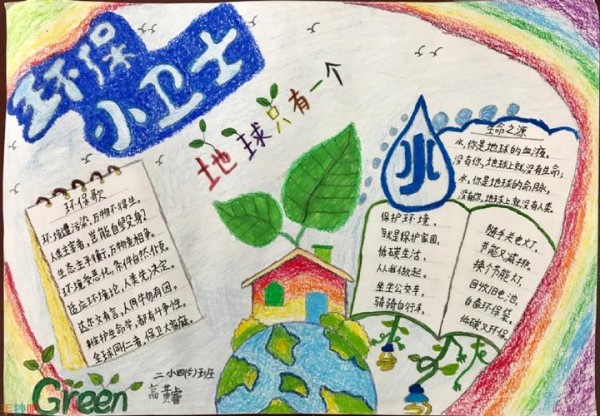 环保
小卫士
地球只有一个
环保歌
环境遭污染,万物不得生。
人类主宰者,岂能自毁身?
生态主平衡,万物贵相争。
环境变恶化,条件自然优质。
适应环境论,人类先决定。
达尔文有言,人同午物有因。
维护生命学,都有斗争性。
全球同仁者,保卫大家庭。
Green
二小四(5)班
水
生命之源
水,你是地球的血液,
没有你,地球上就没有生命;
水,你是地球的命脉,
没有你,地球上就没有人类。
保护环境,
就是保护家园,
低碳生活,
从我做起。
坐坐公交车,
骑骑自行车,
随手关电灯,
节能又减排,
换个节能灯,
回收旧电池,
自备环保袋,
低碳又环保